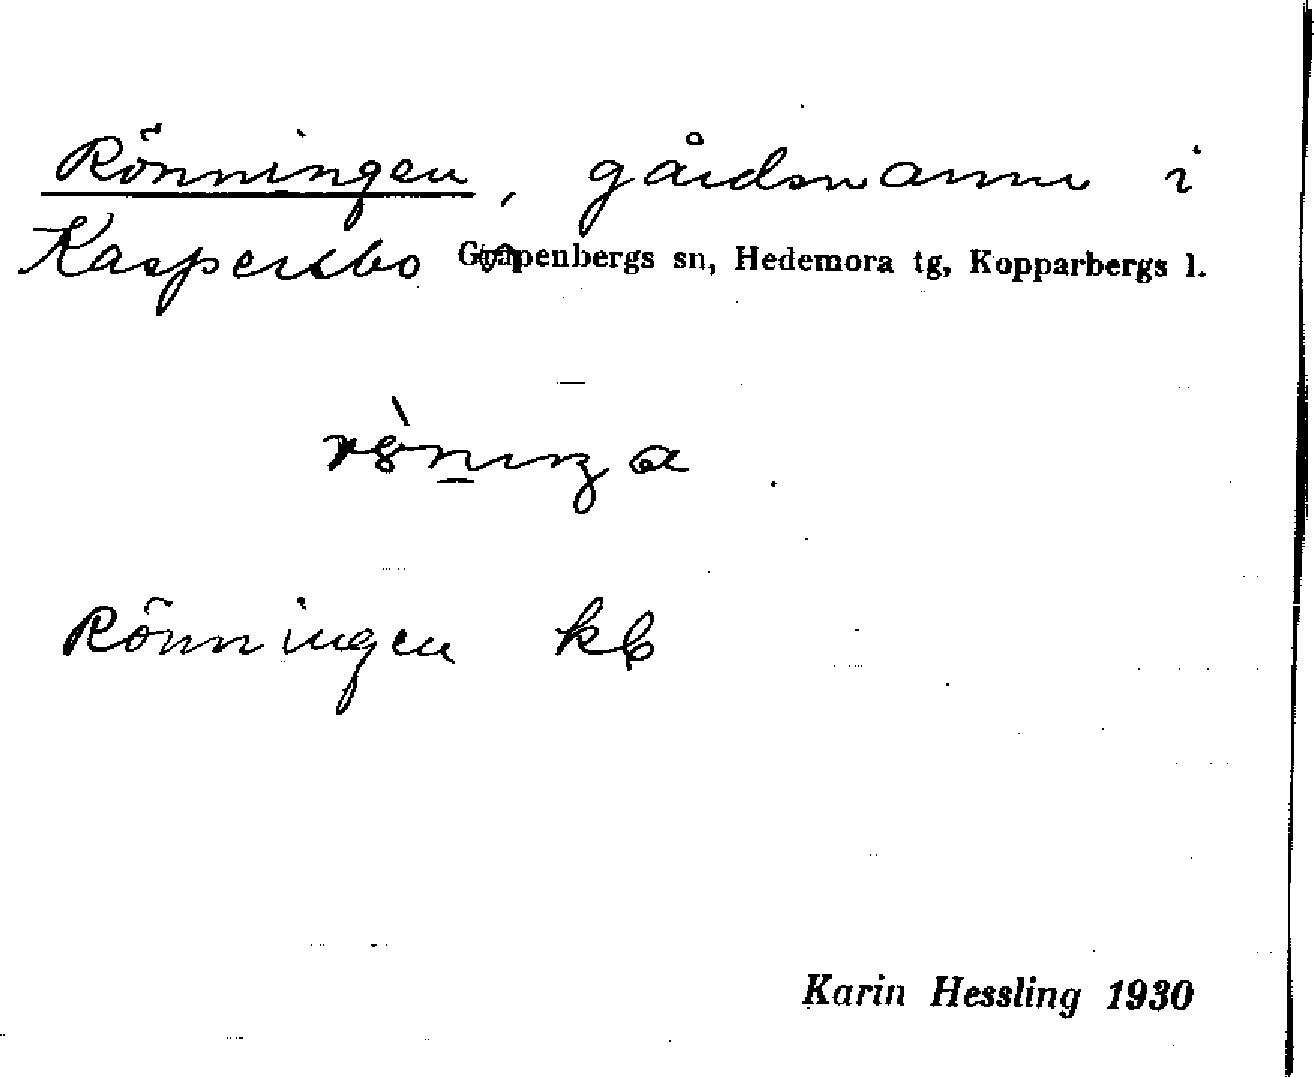 Rönningen, gårdsnamn i
Kaspersbo Garpenbergs sn, Hedemora tg, Kopparbergs l.
Rönningen kb
Karin Hessling 1930